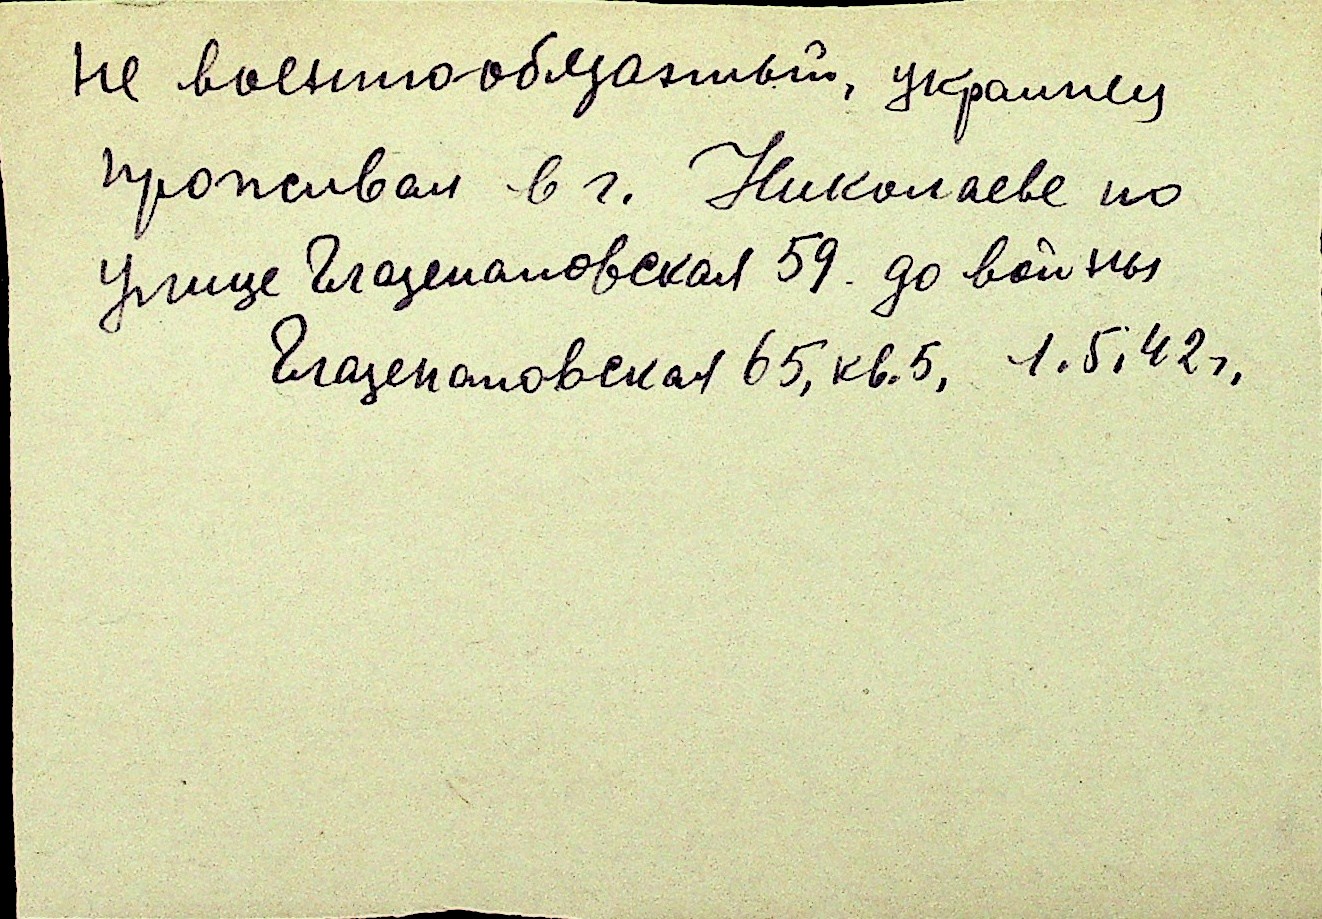 не военнообязанный, украинец
проживал в г. Николаеве по
улице Глазенаповская 59. до войны
Глазенаповская 65, кв. 5, 1.5.42 г,